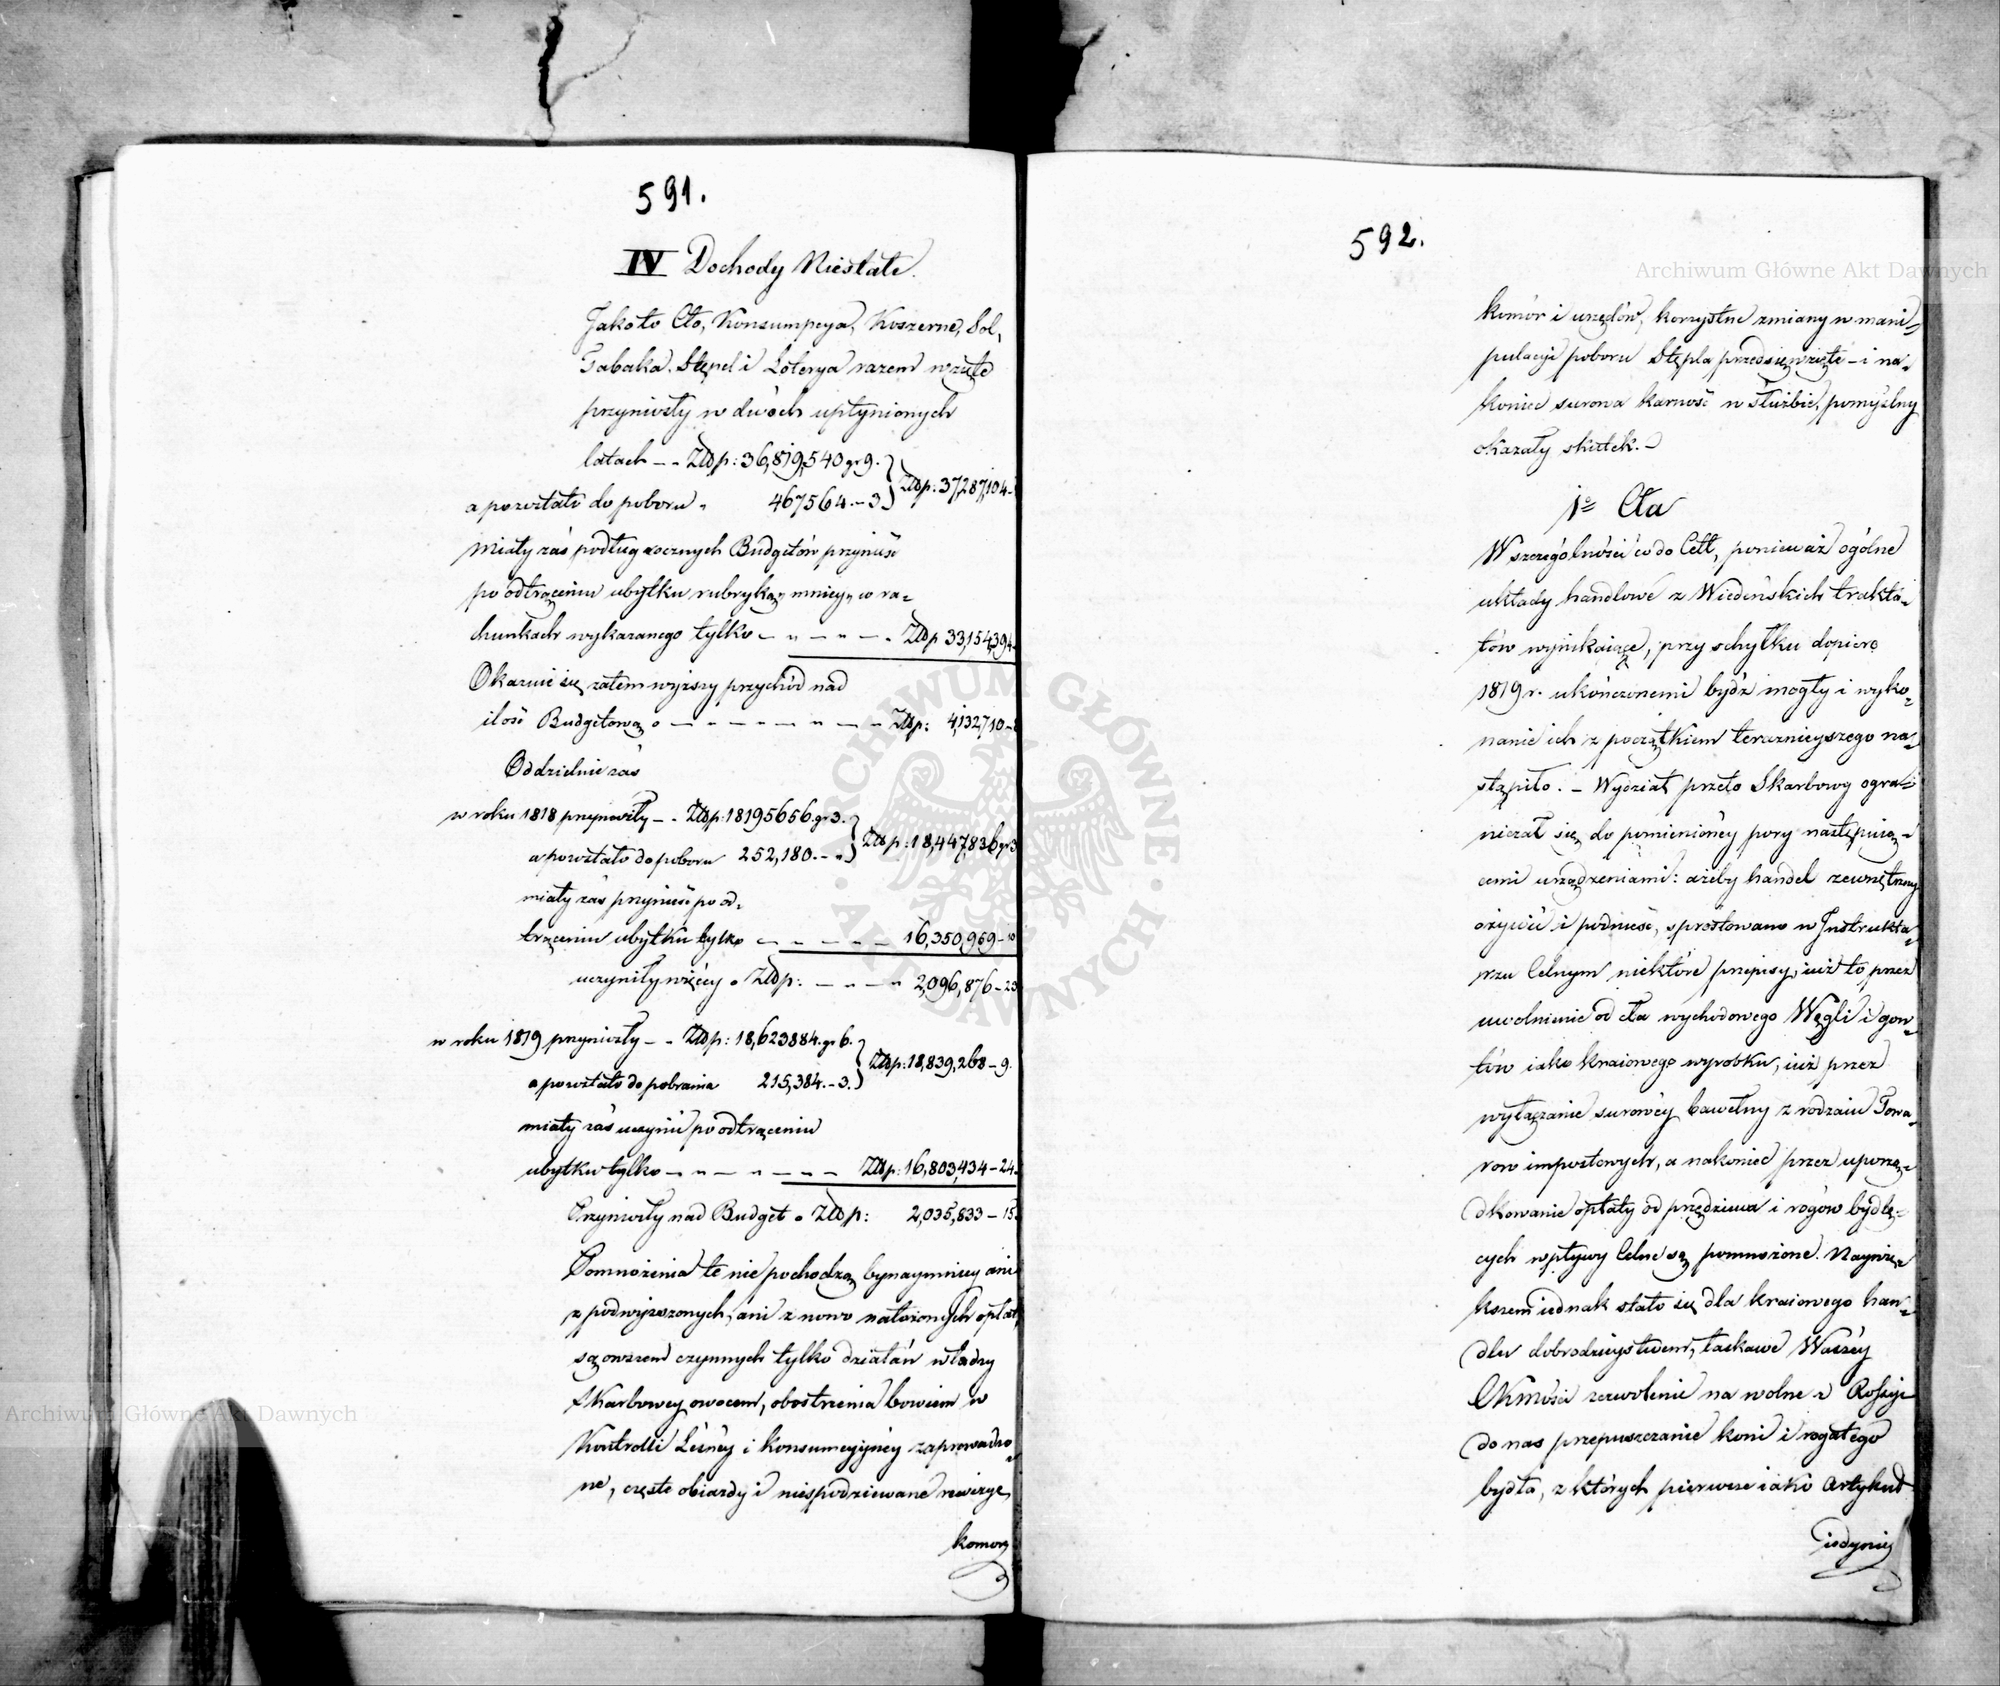 591.
IV Dochody Niestałe.
Jako to Cło, Konsumpcya, Koszerne, Sol,
Tabaka, Stępel i Loterya razem wzięte
przyniosły w dwóch upłynionych
latach – „ Złłp: 36,819,540 gr 9. } Złłp: 37,287,104 –
a pozostało do poboru „ 467564. – 3
miały zaś podług rocznych Budgetów przynieść
po odtrąceniu ubytku rubryką „mniey„ w ra=
chunkach wykazanego tylko – „ – „ – „ Złłp 33,154,394
Okazuie się zatem wyższy przychód nad
ilość Budgetową „ – „ – „ – „ – Złłp: 4,132,710 –
Oddzielnie zaś
w roku 1818 przyniosły – „ Złłp: 18195656. gr 3. } Złłp: 18,447,836 gr 3
a pozostało do poboru 252,180. – „
miały zaś przynieść po od=
trąceniu ubytku tylko – „ – „ – – 16,350,959 – 10
uczyniły więcey „ Złłp: – „ – „ 2,096,876 – 23
w roku 1819 przyniosły – „ Złłp: 18,623884. gr 6. } Złłp: 18,839,268 – 9.
a pozostało do pobrania 215,384. – 3.
miały zaś uczynić po odtrąceniu
ubytku tylko – „ – „ – – – Złłp: 16,803,434 – 24.
Przyniosły nad Budget „ Złłp: 2,035,833 – 15.
Pomnożenia te nie pochodzą bynaymniey ani
z podwyższonych, ani z nowo nałożonych opłat,
są owszem czynnych tylko działań władzy
Skarbowey owocem, obostrzenia bowiem w
Kontrolli Leśney i konsumcyyney zaprowadzo=
ne, częste obiazdy i niespodziewane rewizye
komor
592.
komór i urzędów, korzystne zmiany w mani=
pulacyi poboru Stępla przedsięwzięte – i na=
koniec surowa karność w służbie, pomyślny
okazały skutek. –
1º Cła
W szczególności co do Ceł, ponieważ ogólne
układy handlowe z Wiedeńskich trakta=
tów wynikaiące, przy schyłku dopiero
1819 r. ukończonemi bydź mogły i wyko=
nanie ich z początkiem teraznieyszego na=
stąpiło. – Wydział przeto Skarbowy ogra=
niczał się do pomienioney pory następuią=
cemi urządzeniami: ażeby handel zewnętrzny
ożywić i podnieść, sprostowano w Instrukta=
rzu Celnym niektóre przepisy, iuż to przez
uwolnienie od cła wychodowego Węgli i gon=
tów iako kraiowego wyrobku, iuż przez
wyłączanie surowey bawełny z rodzaiu Towa=
row impostowych, a nakoniec przez uporzą=
dkowanie opłaty od przędziwa i rogów bydlę=
cych wpływy Celne są pomnożone. Naywię=
kszem iednak stało się dla kraiowego han=
dlu dobrodzieystwem, łaskawe Waszey
CKMości zezwolenie na wolne z Rossyi
do nas przepuszczanie koni i rogatego
bydła, z których pierwsze iako Artykuł
iedynie